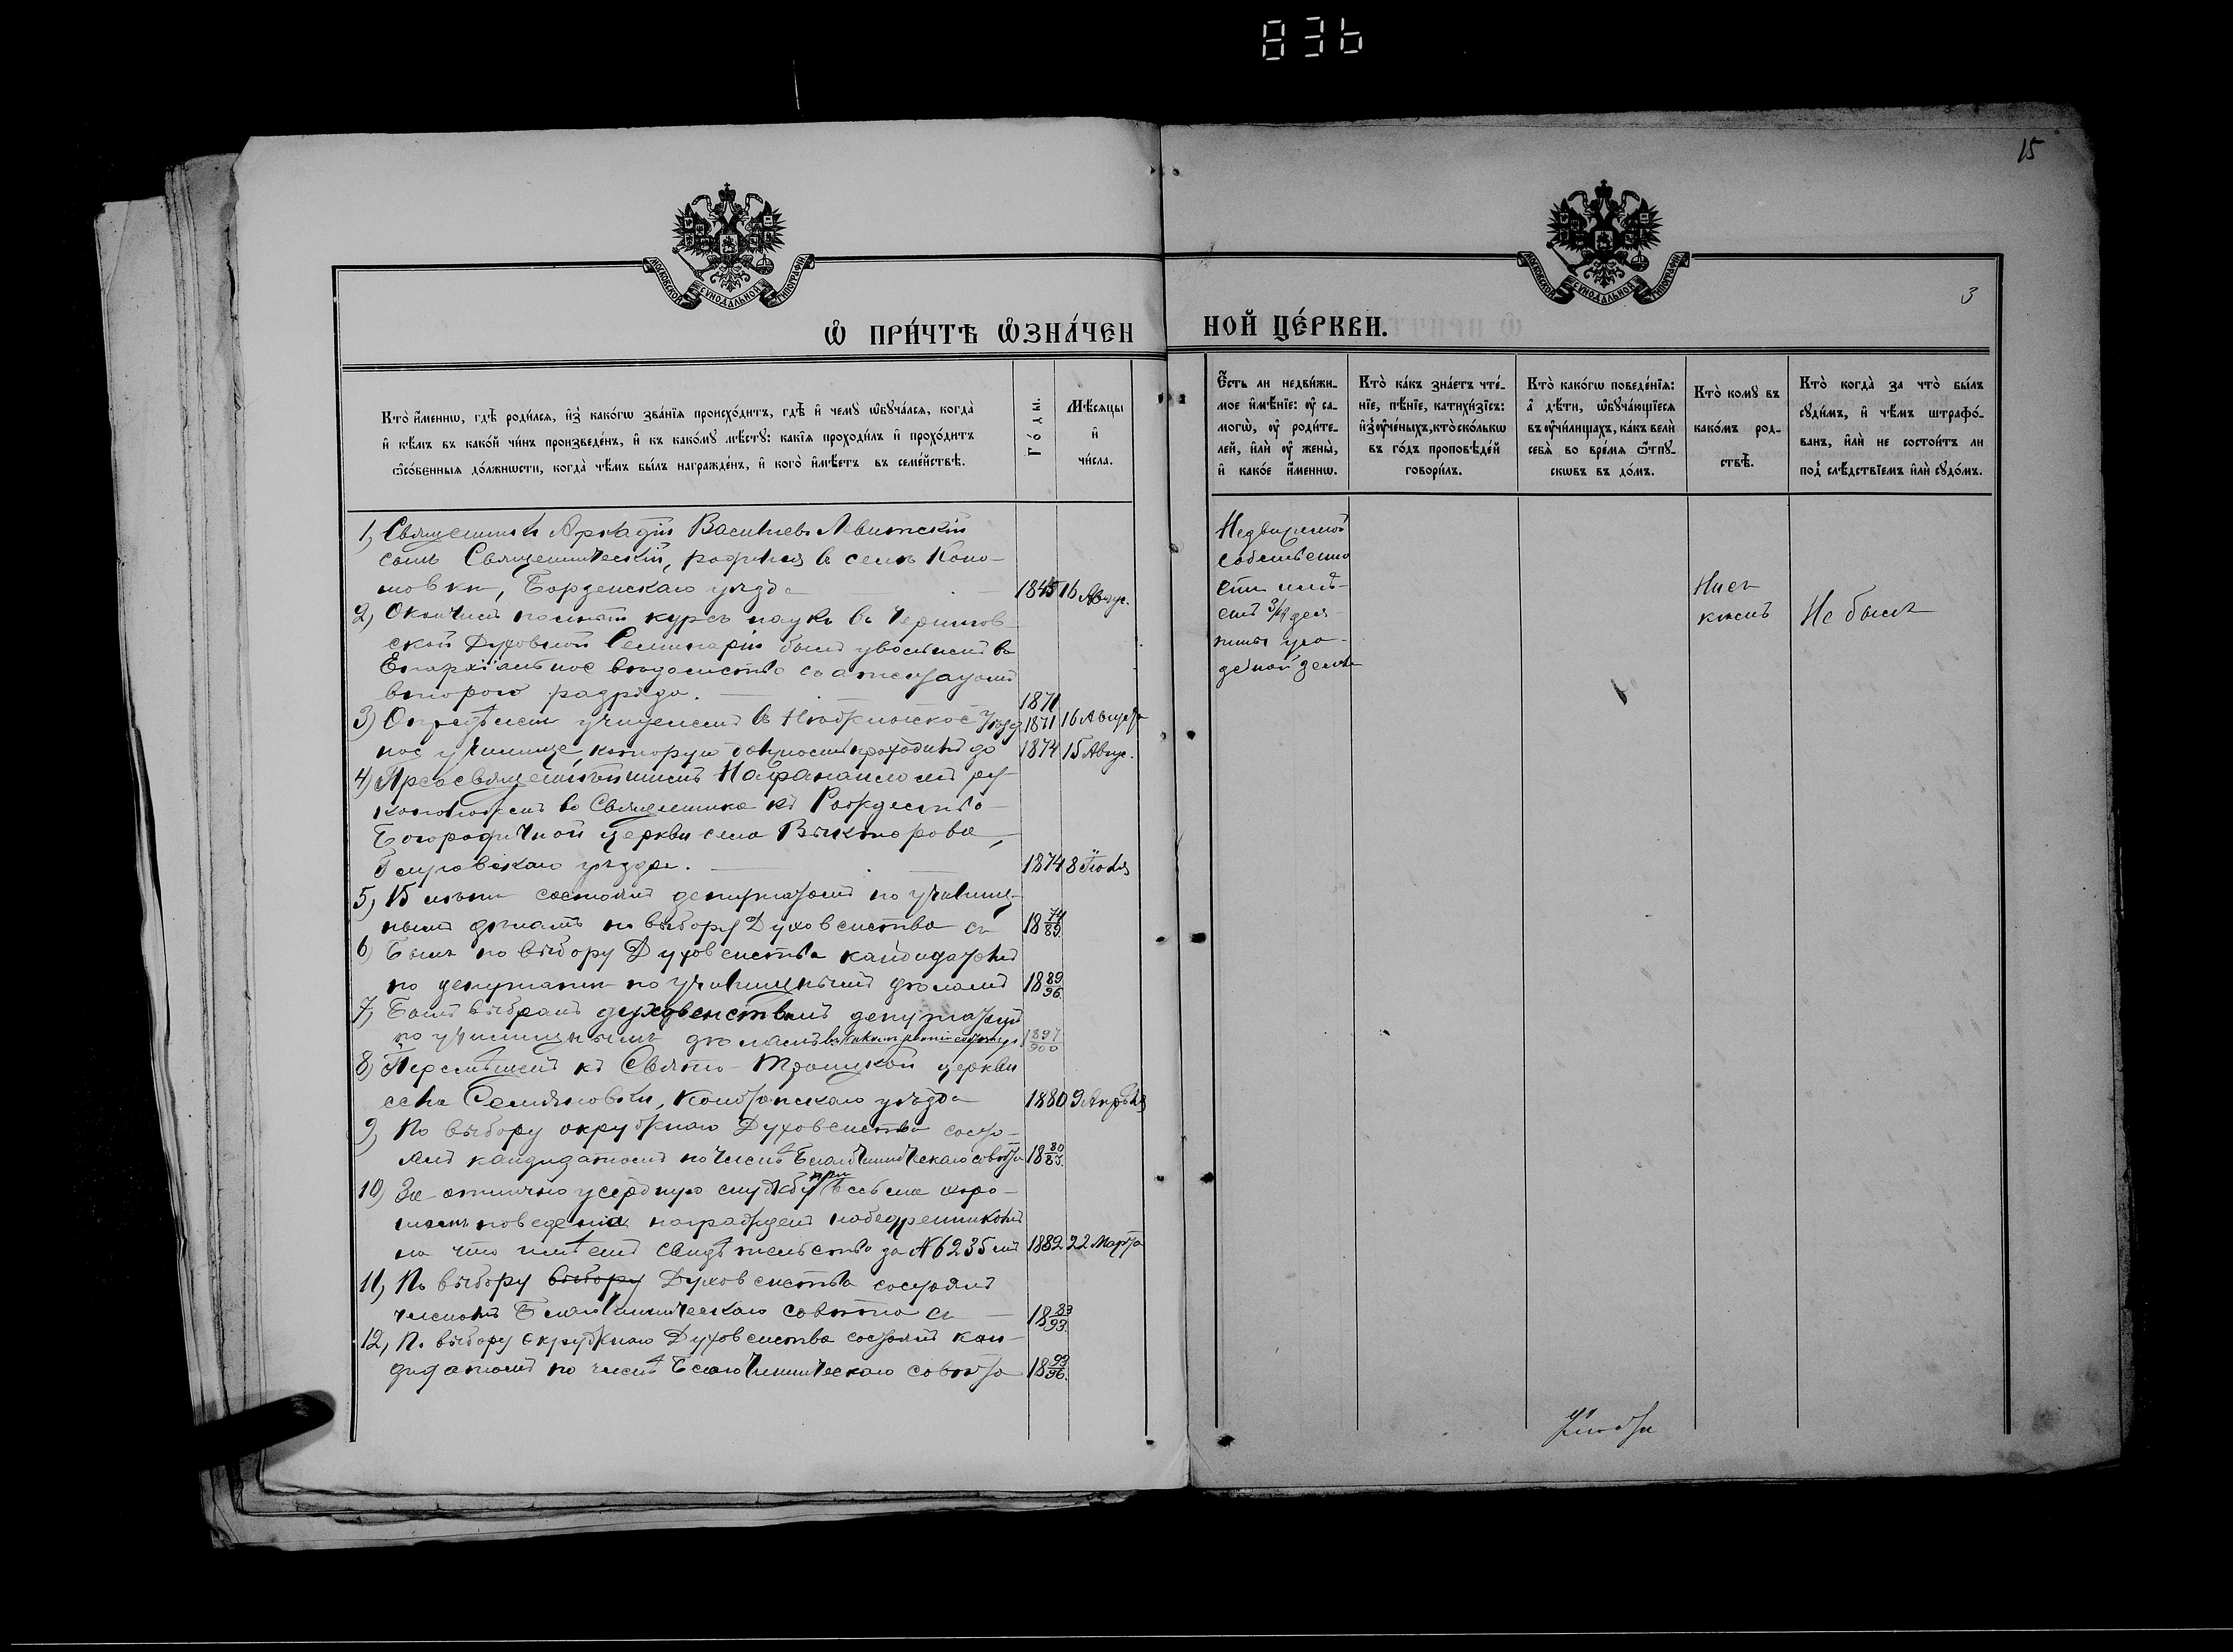 836
15
3
МОСКОВСКОЙ СѴНОДАЛЬНОЙ ТИПОГРАФІИ
МОСКОВСКОЙ СѴНОДАЛЬНОЙ ТИПОГРАФІИ
Ѽ ПРИ́ЧТѢ ѠЗНА́ЧЕН
НОЙ ЦЕ́РКВИ.
Кто̀ и҆́менно, гдѣ̀ роди́лся, и҆з̾ како́гѡ зва́нїя происхо́дитъ, гдѣ̀ и҆ чемꙋ̀ ѡ҆бꙋча́лся, когда̀
и҆ кѣ́мъ въ како́й чи́нъ произведе́нъ, и҆ къ како́мꙋ мѣ́стꙋ: какі̑я проходи́лъ и҆ прохо́дитъ
ѻ҆со́бенныя до́лжности, когда̀ чѣ́мъ бы́лъ награжде́нъ, и҆ кого̀ и҆мѣ́етъ въ семе́йствѣ.
Го́ды.
Мѣ́сяцы
и҆
чи́сла.
Е҆́сть ли недви́жи-
мое и҆мѣ́нїе: ᲂу҆ са-
могѡ̀, ᲂу҆ роди́те-
лей, и҆лѝ ᲂу҆ жены̀,
и҆ како́е и҆́менно.
Кто̀ ка́къ зна́етъ чте́-
нїе, пѣ́нїе, катихи́зїсъ:
и҆з̾ ᲂу҆че́ныхъ, кто̀ ско́лькѡ
въ го́дъ проповѣ́дей
говори́лъ.
Кто̀ како́гѡ поведе́нїя:
а҆ дѣ́ти, ѡ҆бꙋча́ющїеся
въ ᲂу҆чи́лищахъ, ка́къ велѝ
себѧ̀ во вре́мя ѿпꙋ-
сковъ въ до́мъ.
Кто̀ комꙋ̀ въ
како́мъ род-
ствѣ̀.
Кто̀ когда̀ за что̀ бы́лъ
сꙋди́мъ, и҆ чѣ́мъ штрафо́-
ванъ, и҆лѝ не состои́тъ ли
под̾ слѣ́дствїемъ и҆лѝ сꙋдо́мъ.
1, Священникъ Аркадій Васильевъ Левитскій
сынъ Священническій, родился въ селѣ Коно-
товки, Борзенскаго уѣзда 1845 16 Авгус.
2, Окончивъ полный курсъ наукъ въ Чернигов
ской Духовной Семинаріи былъ уволенъ въ
Епархіальное вѣдомство съ аттестатомъ
второго разряда. 1871
3) Опредѣленъ учителемъ въ уѣзд 1871 16 Августа
ное училище, которую должность проходилъ до 1874 15 Авгус.
4) Преосвященнѣйшимъ Нафанаиломъ ру-
коположенъ во Священника къ Рождество-
Богородичной церкви села Викторова,
Глуховскаго уѣзда. 1874 8 Іюля
5, 15 лѣтъ состоялъ депутатомъ по училищ-
нымъ дѣламъ по выбору Духовенства съ 18 74/89.
6) Былъ по выбору Духовенства кандидатомъ
по депутатѣ по училищнымъ дѣламъ 18 89/96.
7, Былъ выбранъ духовенствомъ депутатомъ
по училищнымъ дѣламъ 1897/900
8) Перемѣщенъ къ Свято-Троицкой церкви
села Семяновки, Конотопскаго уѣзда 1880 9 Апрѣля
9, По выбору окружнаго Духовенства состо-
ялъ кандидатомъ по членѣ Благочинническаго совѣта 18 80/83.
10) За отлично усердную службу при весьма хоро-
шемъ поведеніи награжденъ набедренникомъ
на что имѣетъ свидѣтельство за №6235мъ 1882 22 Марта
11, По выбору выбору Духовенства состоялъ
членомъ Благочинническаго совѣта съ 18 83/93.
12, По выбору окружнаго Духовенства состоялъ кан-
дидатомъ по членѣ Благочинническаго совѣта 18 93/96.
Недвижимой
собственно
сти имѣ-
етъ 3/4 деся
тины уса-
дебной земли
Ни съ
кѣмъ
Не былъ